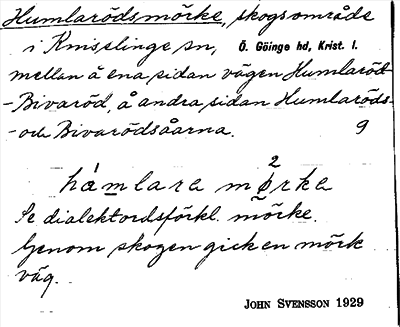 Humlarödsmörke, skogsområde
i Knisslinge sn, Ö. Göinge hd, Krist. l.
mellan å ena sidan vägen Humlaröd-
-Bivaröd, å andra sidan Humlaröds-
-och Bivarödsåarna. 9
hámlara mǫ²rka
Se dialektordsförkl. mörke.
Genom skogen gick en mörk
väg.
JOHN SVENSSON 1929